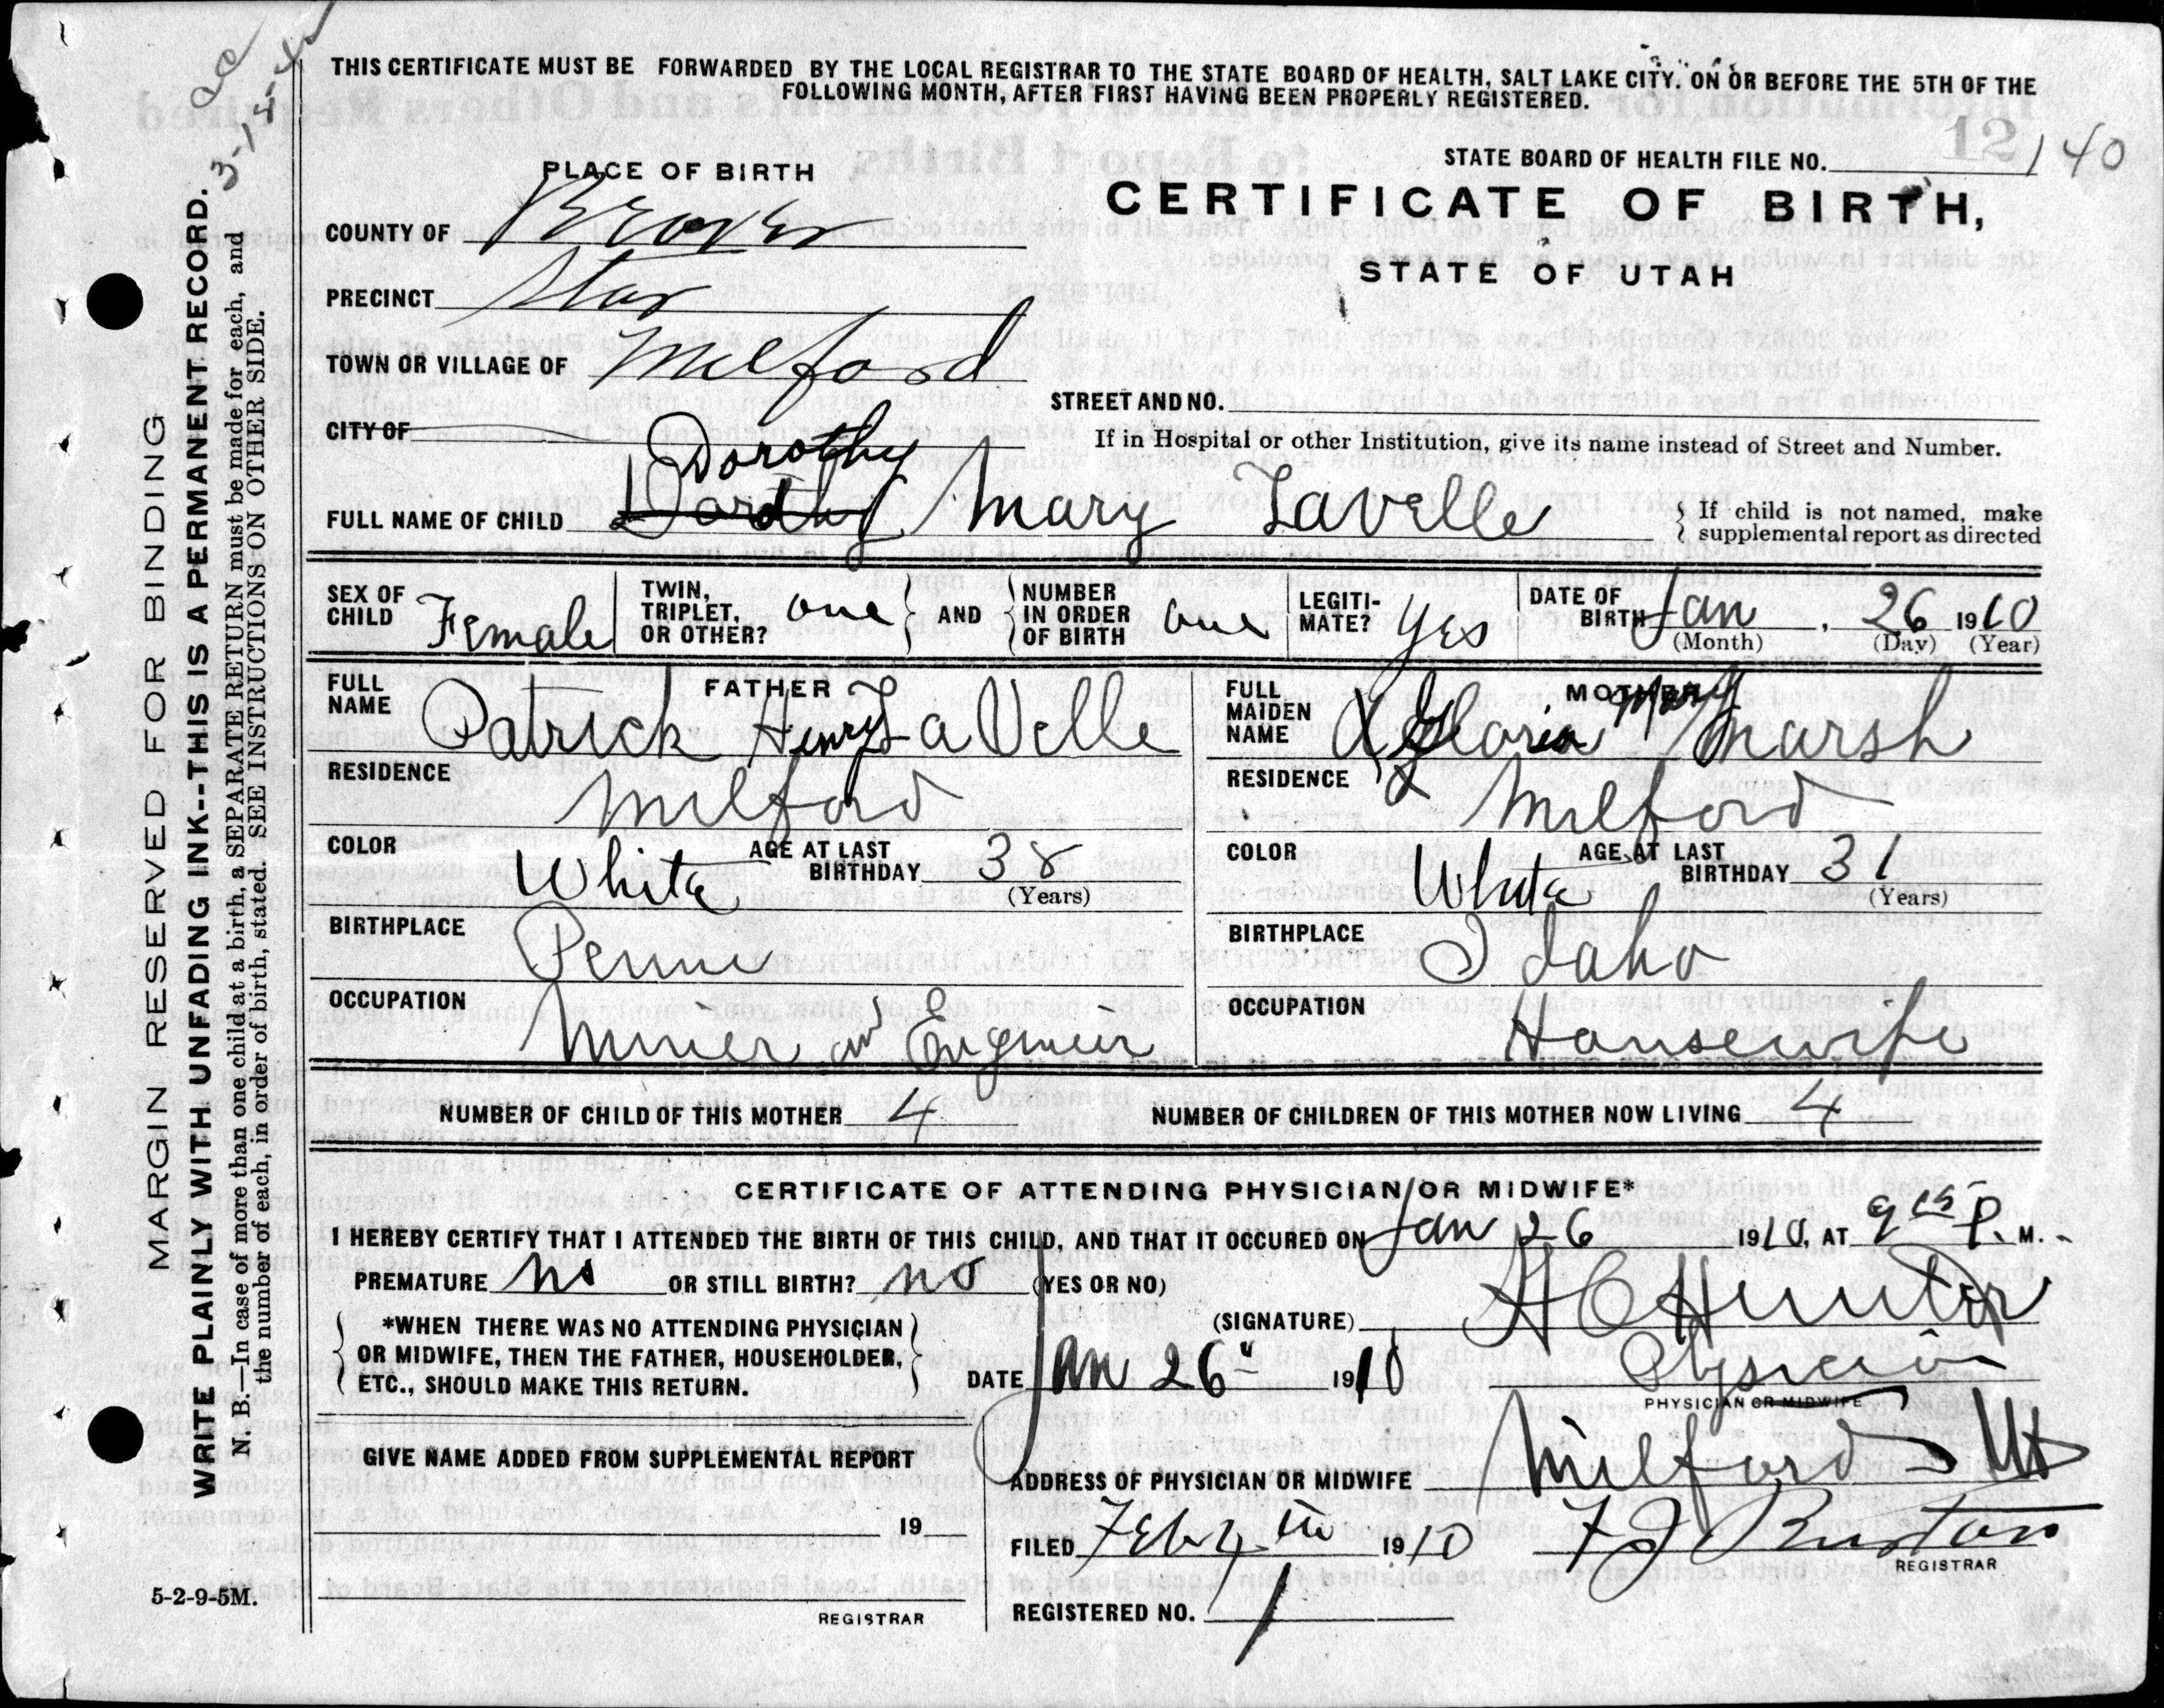 THIS CERTIFICATE MUST BE FORWARDED BY THE LOCAL REGISTRAR TO THE STATE BOARD OF HEALTH, SALT LAKE CITY. ON OR BEFORE THE 5TH OF THE
FOLLOWING MONTH, AFTER FIRST HAVING BEEN PROPERLY REGISTERED.
STATE BOARD OF HEALTH FILE NO. 12 140
PLACE OF BIRTH
CERTIFICATE OF BIRTH,
STATE OF UTAH
COUNTY OF Beaver
PRECINCT Star
TOWN OR VILLAGE OF Milford
STREET AND NO.
CITY OF
If in Hospital or other Institution, give its name instead of Street and Number.
Dorothy
FULL NAME OF CHILD Dorthy Mary Lavelle
If child is not named, make
supplemental report as directed
SEX OF CHILD Female
TWIN, TRIPLET, OR OTHER? one AND NUMBER IN ORDER OF BIRTH one
LEGITI-MATE? Yes
DATE OF BIRTH Jan, 26 1910
(Month) (Day) (Year)
FATHER
FULL NAME Patrick Henry La Velle
RESIDENCE Milford
COLOR White AGE AT LAST BIRTHDAY 38
(Years)
BIRTHPLACE Penn
OCCUPATION Miner and Engineer
MOTHER
FULL MAIDEN NAME Gloria Mary Marsh
RESIDENCE Milford
COLOR White AGE AT LAST BIRTHDAY 31
(Years)
BIRTHPLACE Idaho
OCCUPATION Housewife
NUMBER OF CHILD OF THIS MOTHER 4 NUMBER OF CHILDREN OF THIS MOTHER NOW LIVING 4
CERTIFICATE OF ATTENDING PHYSICIAN OR MIDWIFE*
I HEREBY CERTIFY THAT I ATTENDED THE BIRTH OF THIS CHILD, AND THAT IT OCCURED ON Jan 26 1910, AT 9 15 P. M.
PREMATURE No OR STILL BIRTH? no (YES OR NO)
*WHEN THERE WAS NO ATTENDING PHYSICIAN
OR MIDWIFE, THEN THE FATHER, HOUSEHOLDER,
ETC., SHOULD MAKE THIS RETURN.
(SIGNATURE) H C Hunter
Physician
DATE Jan 26" 1910
PHYSICIAN OR MIDWIFE
GIVE NAME ADDED FROM SUPPLEMENTAL REPORT
19
REGISTRAR
ADDRESS OF PHYSICIAN OR MIDWIFE Milford Ut
FILED Feb 4th 1910
REGISTRAR
REGISTERED NO. 1
5-2-9-5M.
MARGIN RESERVED FOR BINDING
WRITE PLAINLY WITH UNFADING INK--THIS IS A PERMANENT RECORD.
N. B.—In case of more than one child at a birth, a SEPARATE RETURN must be made for each, and
the number of each, in order of birth, stated. SEE INSTRUCTIONS ON OTHER SIDE.